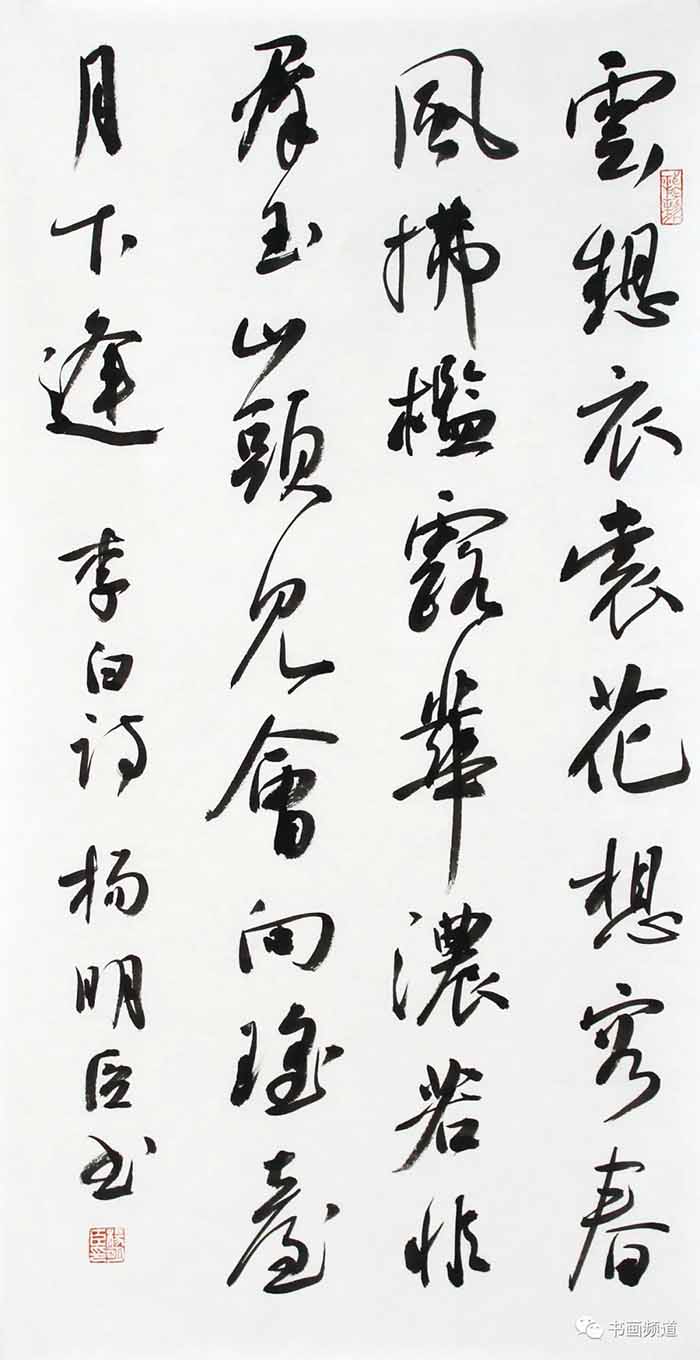 雲想衣裳花想容春
風拂檻露華濃若非
羣玉山頭見會向瑤臺
月下逢 李白诗 杨明臣书
书画频道